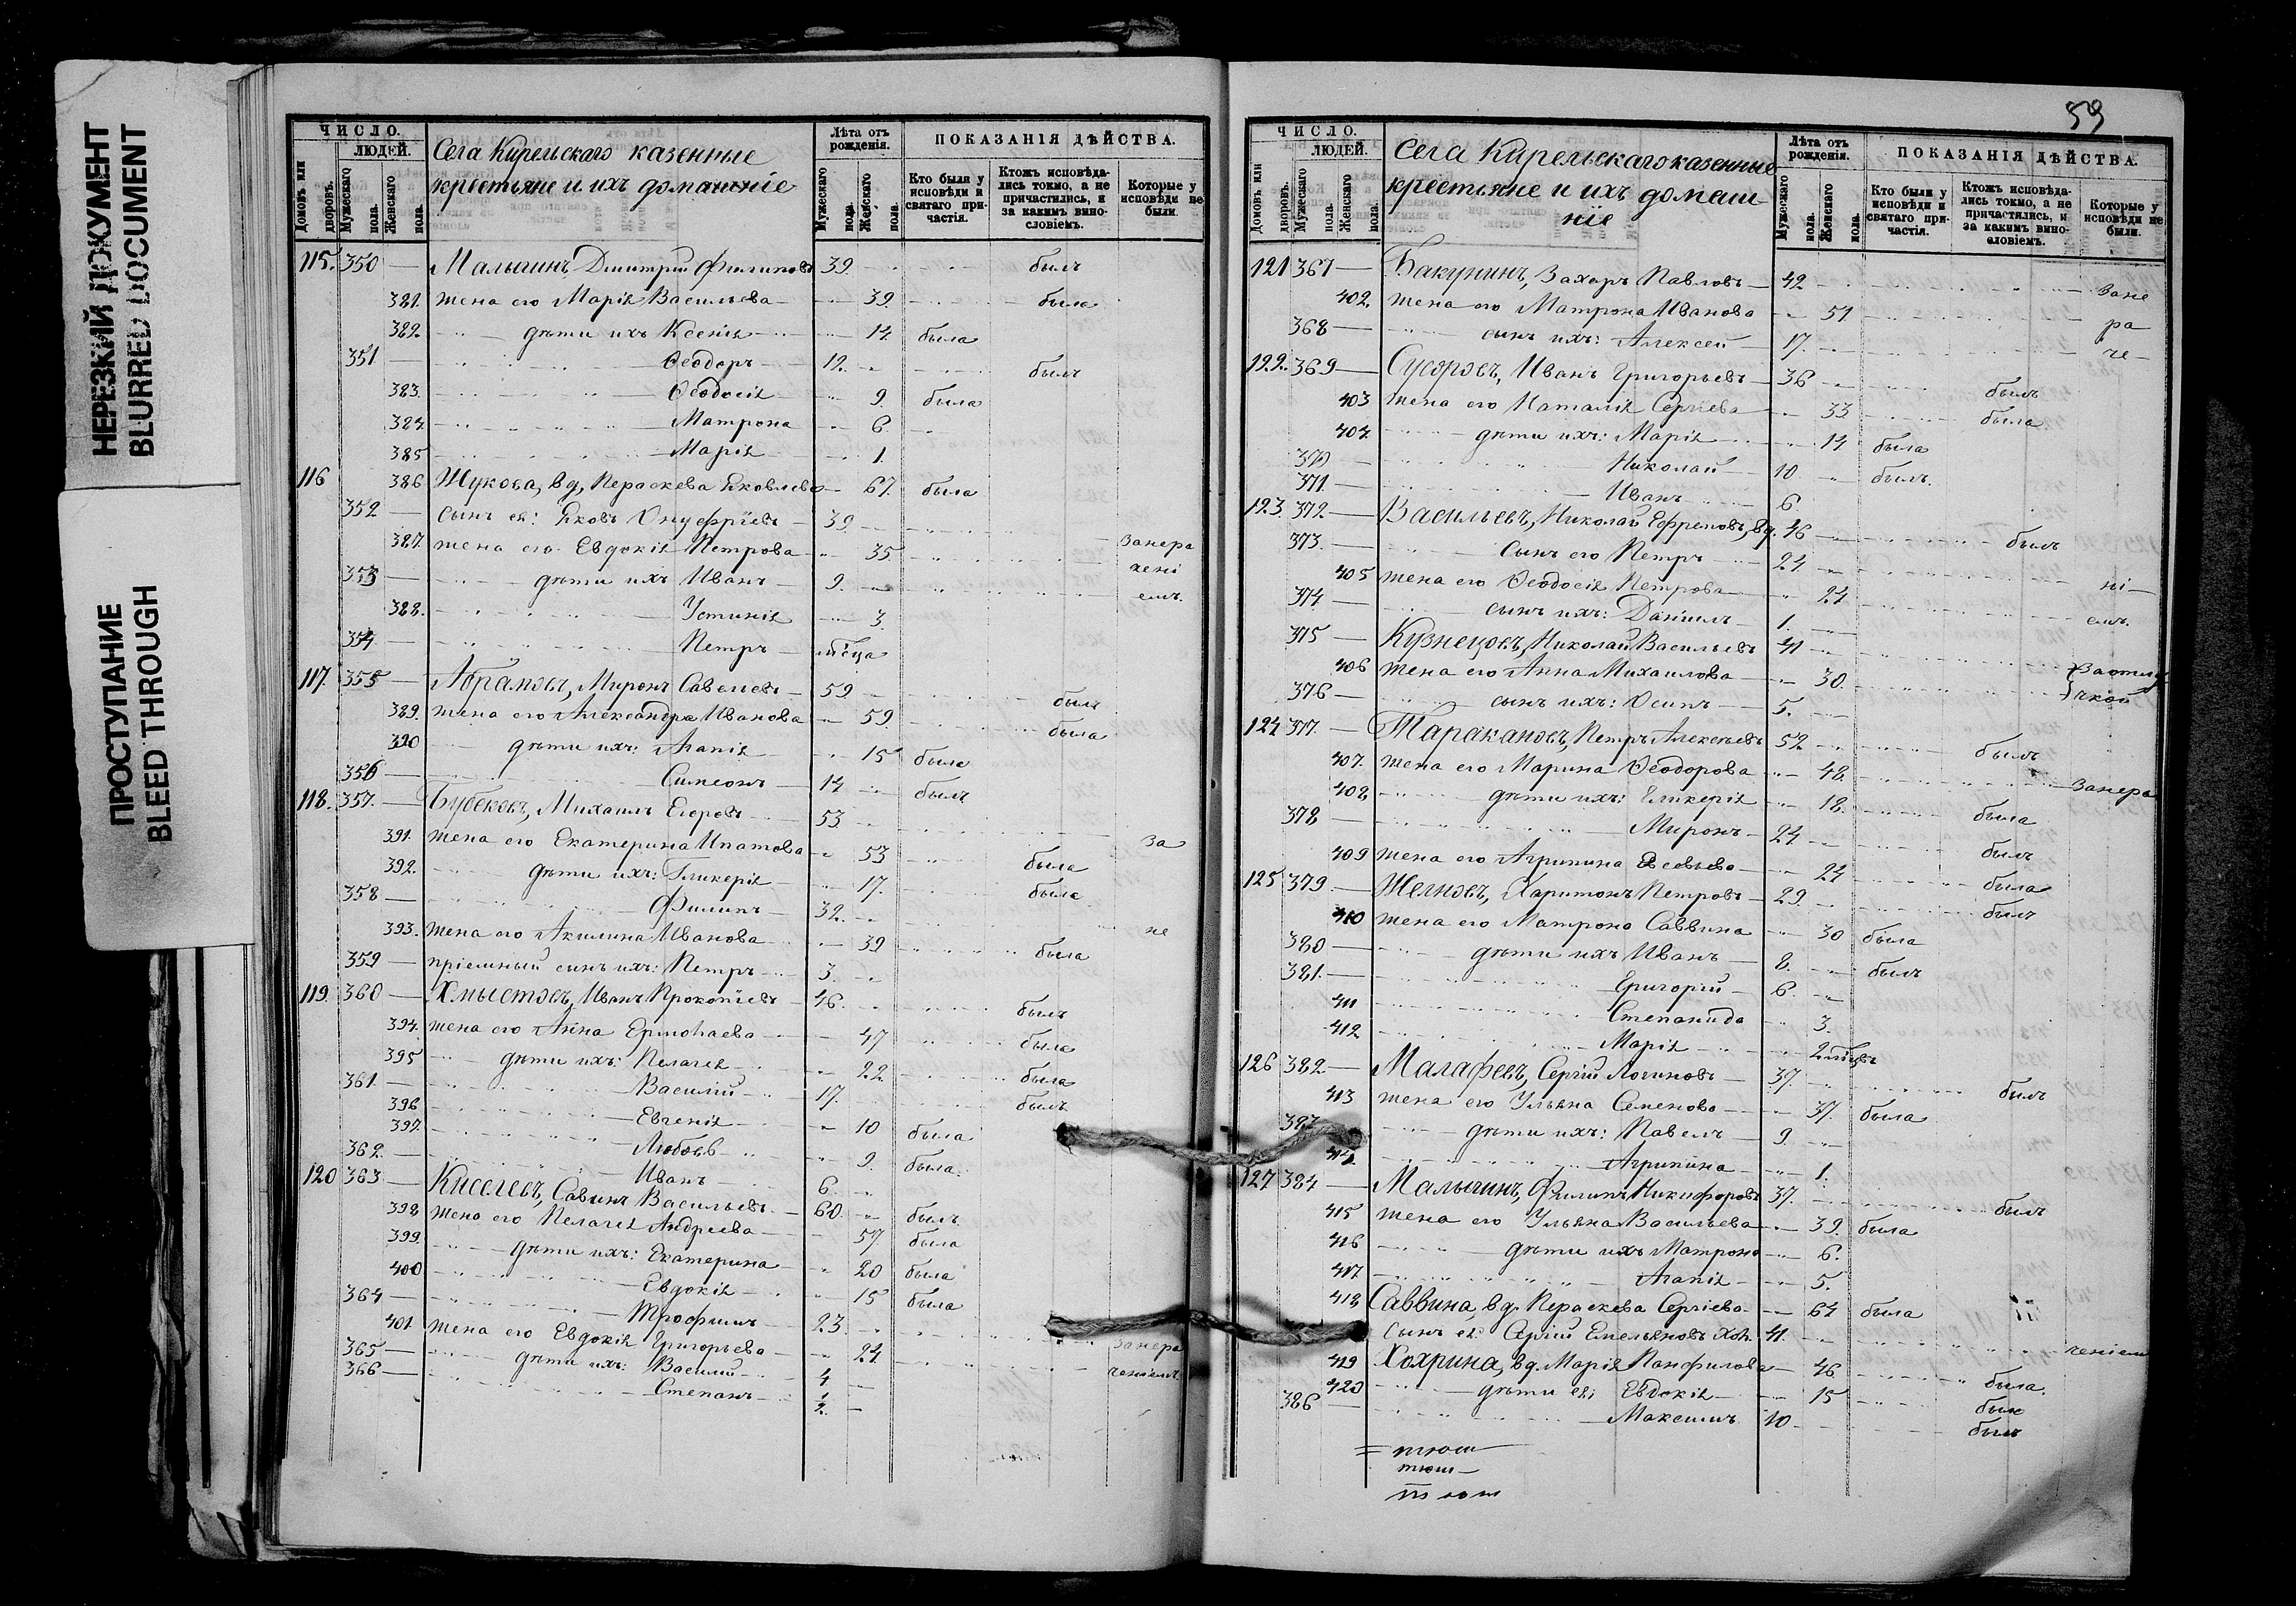 НЕРЕЗКИЙ ДОКУМЕНТ
BLURRED DOCUMENT
ПРОСТУПАНИЕ
BLEED THROUGH
ЧИСЛО.
ЛЮДЕЙ.
Домовъ или дворовъ.
Мужескаго пола.
Женскаго пола.
Села Кирельскаго казенные
крестьяне и ихъ домашніе
Лѣта отъ рожденія.
Мужескаго пола.
Женскаго пола.
ПОКАЗАНІЯ ДѢЙСТВА.
Кто были у исповѣди и святаго причастія.
Ктожъ исповѣдались токмо, а не причастились, и за какимъ винословіемъ.
Которые у исповѣди не были.
115. 350 — Малыгинъ, Дмитрій Филиповъ 39. былъ
381. жена его Марія Васильева — 39. была
382. дѣти ихъ Ксенія — 14 была
351 — Ѳеодоръ — 12. былъ
383. Ѳеодосія 9. была
384. Матрона 6.
385 Марія 1.
116 386 Жукова, вд, Пераскева Яковлева — 67. была
352 — сынъ ея: Яковъ Онуфріевъ — 39.
387. жена его Евдокія Петрова — 35. Занера
353 — дѣти ихъ Иванъ — 9. чені
388. Устинія 3. емъ.
354 — Петръ — мѣсца
117. 355 — Абрамовъ, Миронъ Савелевъ — 59 былъ
389. жена его Александра Иванова — 59. была
390 дѣти ихъ: Агапія 15 была
356 — Симеонъ — 14 былъ
118. 357. — Бубековъ, Михаилъ Егоровъ 53. За
391. жена его Екатерина Ипатова 53 была
392. дѣти ихъ: Гликерія 17. была
358 — Филипъ 32. не
393. жена его Акилина Иванова 39 была
359 — пріемный сынъ ихъ: Петръ 3.
119. 360 — Хмыстовъ, Иванъ Прокопіевъ — 46. былъ
394. жена его Анна Ермолаева 47 была
395 дѣти ихъ: Пелагея 22 была
361. Василій 17. былъ
396 Евгенія 10 была
397. Любовь 9. была.
362. Иванъ 6.
120 363 — Киселевъ, Савинъ Васильевъ — 60. былъ
398 жена его Пелагея Андреева 57 была
399. дѣти ихъ: Екатерина 20 была
400 Евдокія 15 была
364 — Трофимъ 23.
401 жена его Евдокія Григорьева 24. Занера
365 — дѣти ихъ: Василій 4 ченіемъ
366 — Степанъ 2. —
59
ЧИСЛО.
ЛЮДЕЙ.
Домовъ или дворовъ.
Мужескаго пола.
Женскаго пола.
Села Кирельскаго казенные
крестьяне и ихъ домаш
ніе
Лѣта отъ рожденія.
Мужескаго пола.
Женскаго пола.
ПОКАЗАНІЯ ДѢЙСТВА.
Кто были у исповѣди и святаго причастія.
Ктожъ исповѣдались токмо, а не причастились, и за какимъ винословіемъ.
Которые у исповѣди не были.
121 367 — Бакунинъ, Захаръ Павловъ — 42 Зане
402. жена его Матрона Иванова 51. ра
368 — сынъ ихъ: Алексей 17. че —
122. 369 — Суоровъ, Иванъ Григорьевъ — 36 былъ
403 жена его Наталія Сергіева 33 была
404. дѣти ихъ: Марія 14 была
370 — Николай 10 былъ.
371. — Иванъ 6.
123. 372 — Васильевъ, Николай Ефремовъ, вд. 46 былъ
373. — Сынъ его Петръ 24
405 жена его Ѳеодосія Петрова 24 ні —
374 — сынъ ихъ: Даніилъ 1. емъ.
375 — Кузнецовъ, Николай Васильевъ 41
406 жена его Анна Михаилова 30. Заотлу
376 — сынъ ихъ: Осипъ 5. чкой
124 377. — Таракановъ, Петръ Алексѣевъ 52 былъ
407. жена его Марина Ѳеодорова 48. Занера
408 дѣти ихъ: Гликерія 18. была
378 — Миронъ 24 былъ
409 жена его Агрипина Евсевьева 24 была
125 379. — Желновъ, Харитонъ Петровъ — 29. былъ
410 жена его Матрона Саввина 30 была
380 — дѣти ихъ Иванъ 8. былъ
381. — Григорій 6.
411 Степанида 3.
412 Марія 2 мѣсцъ
126 382. — Малафеевъ, Сергій Логиновъ — 37. былъ
413 жена его Ульяна Семенова 37. была
383 дѣти ихъ: Павелъ 9.
414. Агрипина 1.
127 384 — Малыгинъ, Филипъ Никифоровъ 37. былъ
415 жена его Ульяна Васильева 39. была
416 дѣти ихъ Матрона 6.
417 Агапія 5.
418 Саввина, вд. Пераскева Сергіева 64 была
сынъ ея: Сергій Емельяновъ хол. 41. ченіемъ
419 Хохрина, вд. Марія Панфилова 46 была.
420 дѣти ея: Евдокія 15 была
386 — Максимъ 10 былъ